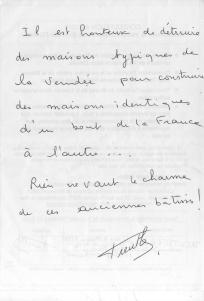 Il est honteux de détruire
des maisons typiques de
la Vendée pour construire
des maisons identiques
d'un bout de la France
à l'autre....
Rien ne vaut le charme
de ces anciennes bâtisses!